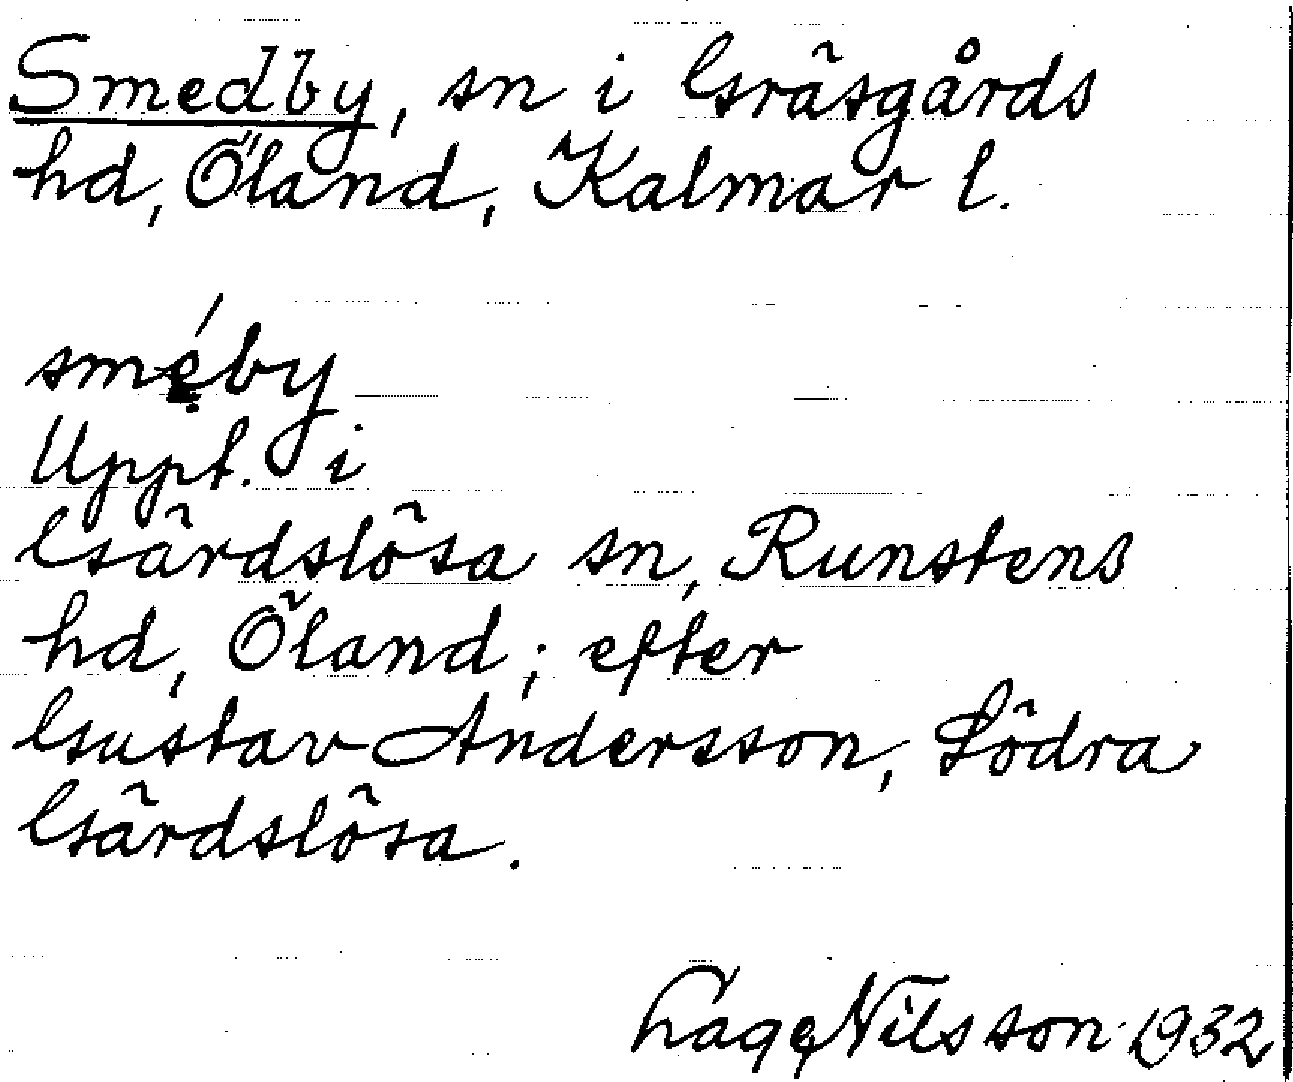 Smedby, sn i Gräsgårds
hd, Öland, Kalmar l.
smẹ́by
Uppt. i
Gärdslösa sn, Runstens
hd, Öland; efter
Gustav Andersson, Södra
Gärdslösa.
Lage Nilsson 1932